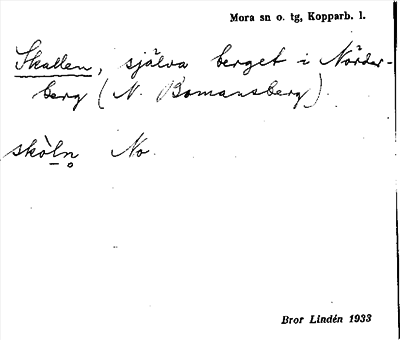 Mora sn o. tg, Kopparb. l.
Skallen, själva berget i Nörder-
berg (N. Bomansberg).
skòl̲n̥ No.
Bror Lindén 1933